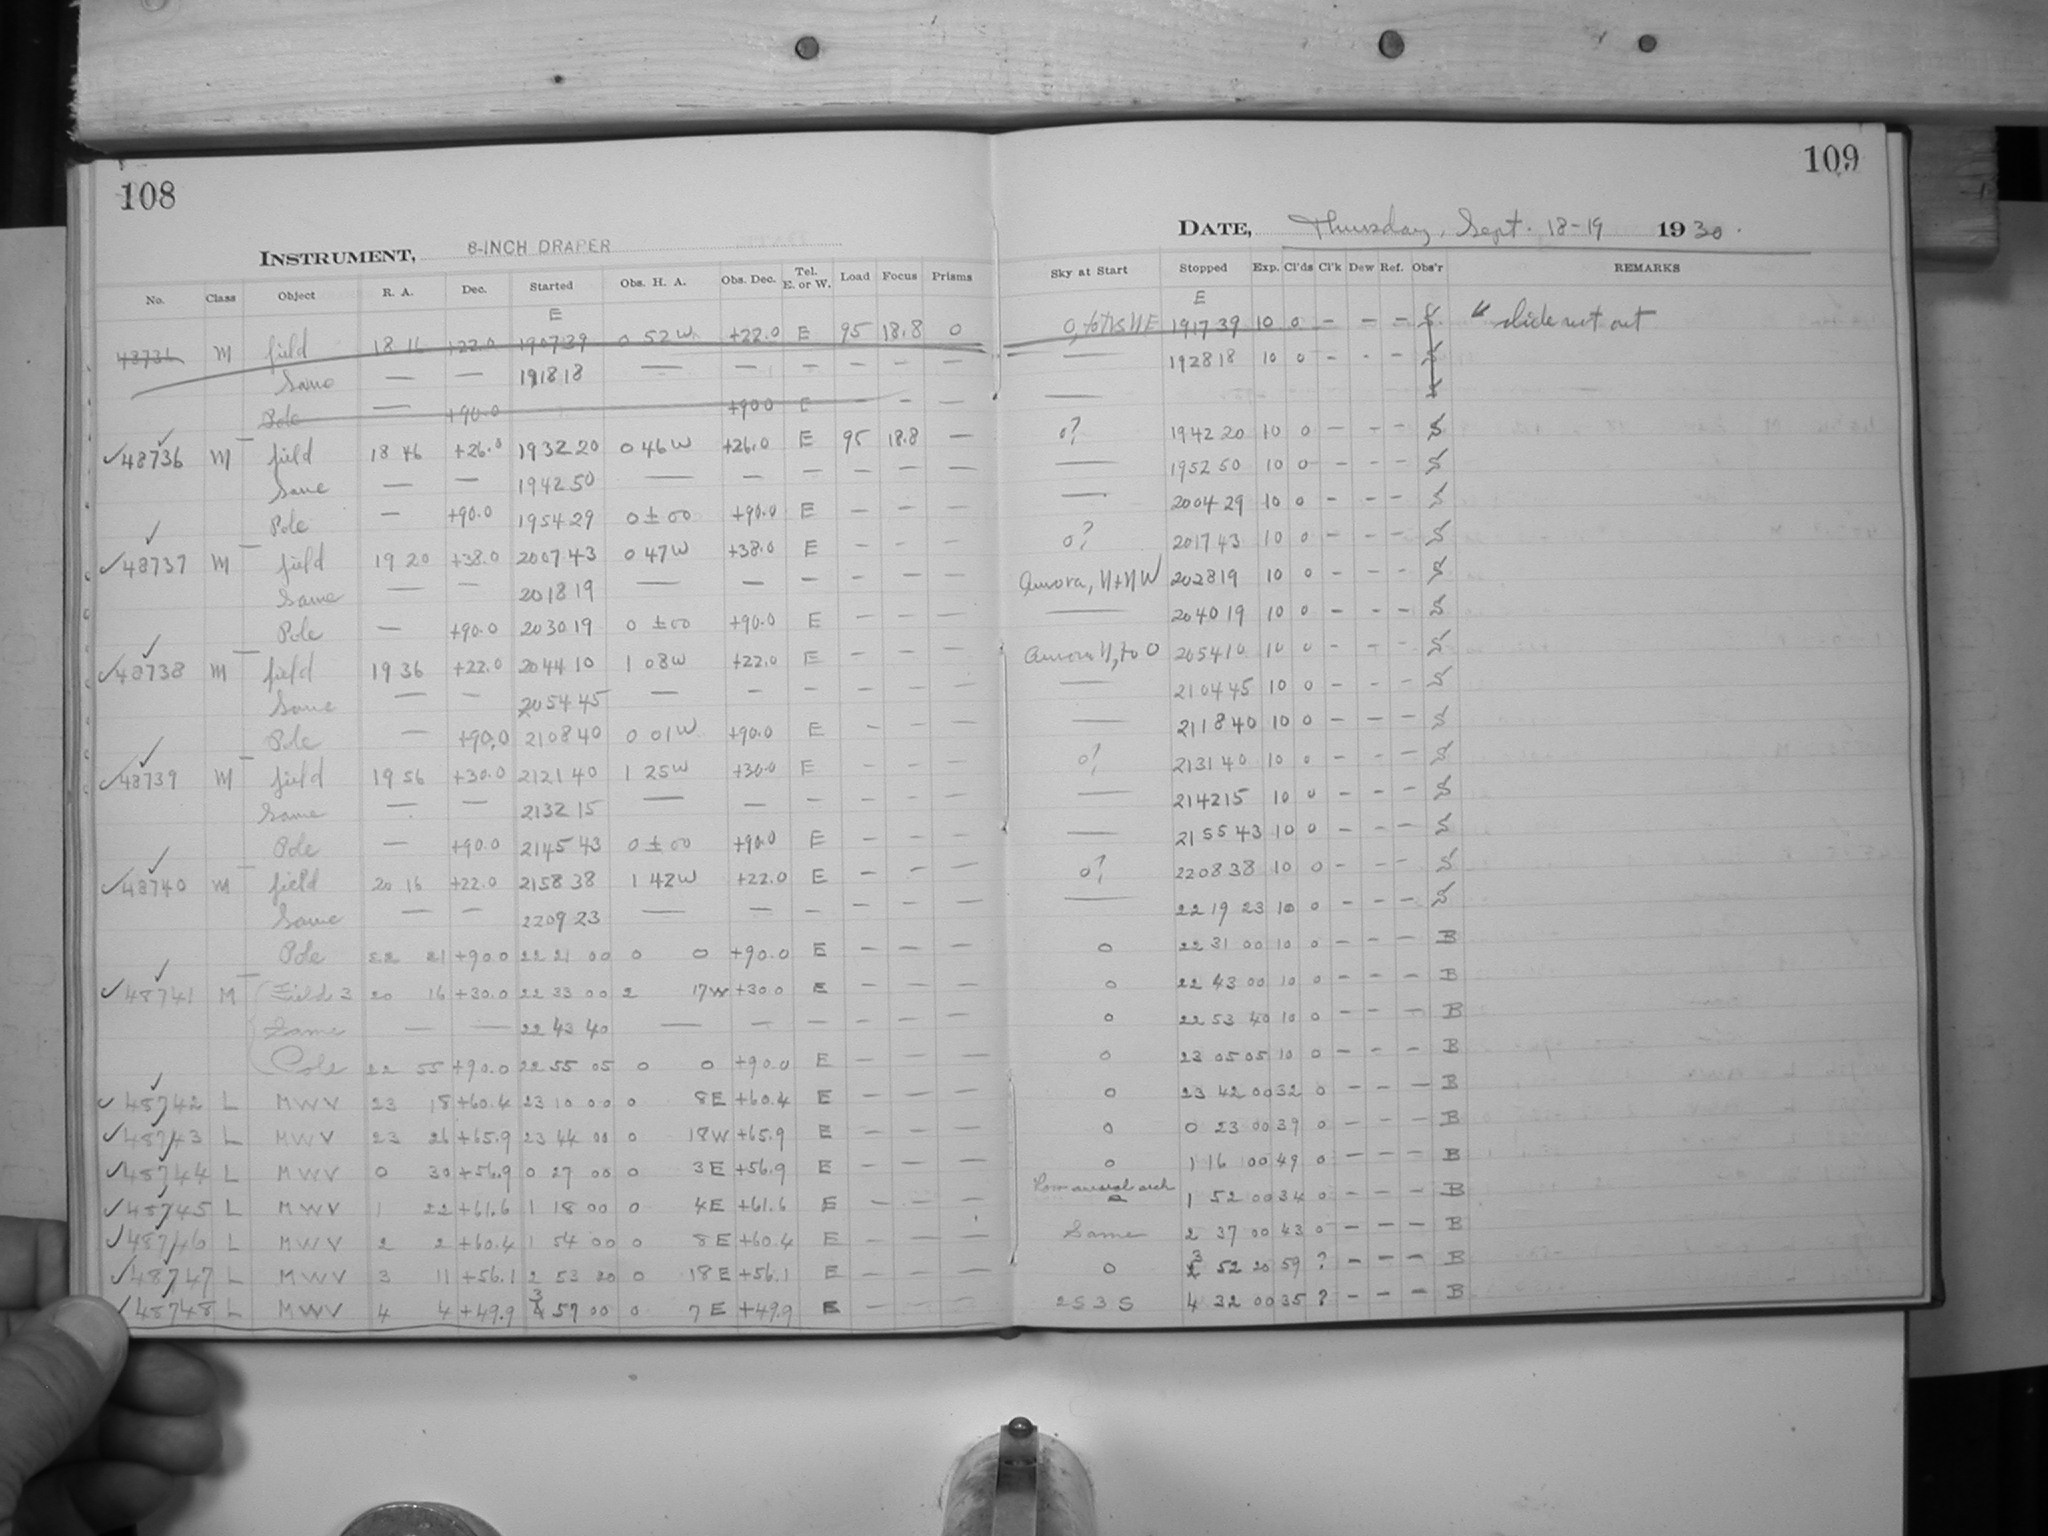 108
109
INSTRUMENT, 8-INCH DRAPER
DATE, Thursday, Sept. 18-19 1930.
No. Class Object R. A. Dec. Started Obs. H. A. Obs. Dec. Tel. E. or W. Load Focus Prisms Sky at Start Stopped Exp. Cl'ds Cl'k Dew Ref. Obs'r REMARKS
E E
M field 18 16 +22.0 19 07 39 0 52 W +22.0 E 95 18.8 0 19 17 39 10 0 — — — S slide not out
Same — — 19 18 18 — — — — — — — 19 28 18 10 0 - - - S
Pole — +90.0 +90.0 E — — S
48736 M field 18 46 +26.0 19 32 20 0 46 W +26.0 E 95 18.8 — 0? 19 42 20 10 0 - - - S
Same — — 19 42 50 — — — — — — — 19 52 50 10 0 - - - S
Pole — +90.0 19 54 29 0 ± 00 +90.0 E — — — — 20 04 29 10 0 - - - S
48737 M field 19 20 +38.0 20 07 43 0 47 W +38.0 E - - — 0? 20 17 43 10 0 - - - S
Same — — 20 18 19 — — — — — — Aurora, N+NW 20 28 19 10 0 - - - S
Pole — +90.0 20 30 19 0 ± 00 +90.0 E — — — — 20 40 19 10 0 - - - S
48738 M field 19 36 +22.0 20 44 10 1 08 W +22.0 E — — — Aurora N, to 0 20 54 10 10 0 - - - S
Same — — 20 54 45 — — — — — — — 21 04 45 10 0 - - - S
Pole — +90.0 21 08 40 0 01 W +90.0 E - — — — 21 18 40 10 0 - - - S
48739 M field 19 56 +30.0 21 21 40 1 25 W +30.0 E — - — 0? 21 31 40 10 0 - - - S
Same — — 21 32 15 — — — — — — — 21 42 15 10 0 - - - S
Pole — +90.0 21 45 43 0 ± 00 +90.0 E — — — — 21 55 43 10 0 - - - S
48740 M field 20 16 +22.0 21 58 38 1 42 W +22.0 E - - — 0? 22 08 38 10 0 - - - S
Same — — 22 09 23 — — — — — — — 22 19 23 10 0 - - - S
Pole 22 21 +90.0 22 21 00 0 0 +90.0 E — — — 0 22 31 00 10 0 - - — B
48741 M Field 3 20 16 +30.0 22 33 00 2 17 W +30.0 E — — — 0 22 43 00 10 0 - - — B
Same — — 22 43 40 — — — — — — 0 22 53 40 10 0 - - — B
Pole 22 55 +90.0 22 55 05 0 0 +90.0 E — — — 0 23 05 05 10 0 - - — B
48742 L MWV 23 18 +60.4 23 10 00 0 8 E +60.4 E — — — 0 23 42 00 32 0 - - — B
48743 L MWV 23 26 +65.9 23 44 00 0 18 W +65.9 E — — — 0 0 23 00 39 0 - - — B
48744 L MWV 0 30 +56.9 0 27 00 0 3 E +56.9 E — — — 0 1 16 00 49 0 - - — B
48745 L MWV 1 22 +61.6 1 18 00 0 4 E +61.6 E — — — Low auroral arch 0 1 52 00 34 0 - - — B
48746 L MWV 2 2 +60.4 1 54 00 0 8 E +60.4 E — — — Same 2 37 00 43 0 — — — B
48747 L MWV 3 11 +56.1 2 53 20 0 18 E +56.1 E — — — 0 3 52 20 59 ? — — — B
48748 L MWV 4 4 +49.9 3 57 00 0 7 E +49.9 E — — — 2S3S 4 32 00 35 ? — — — B